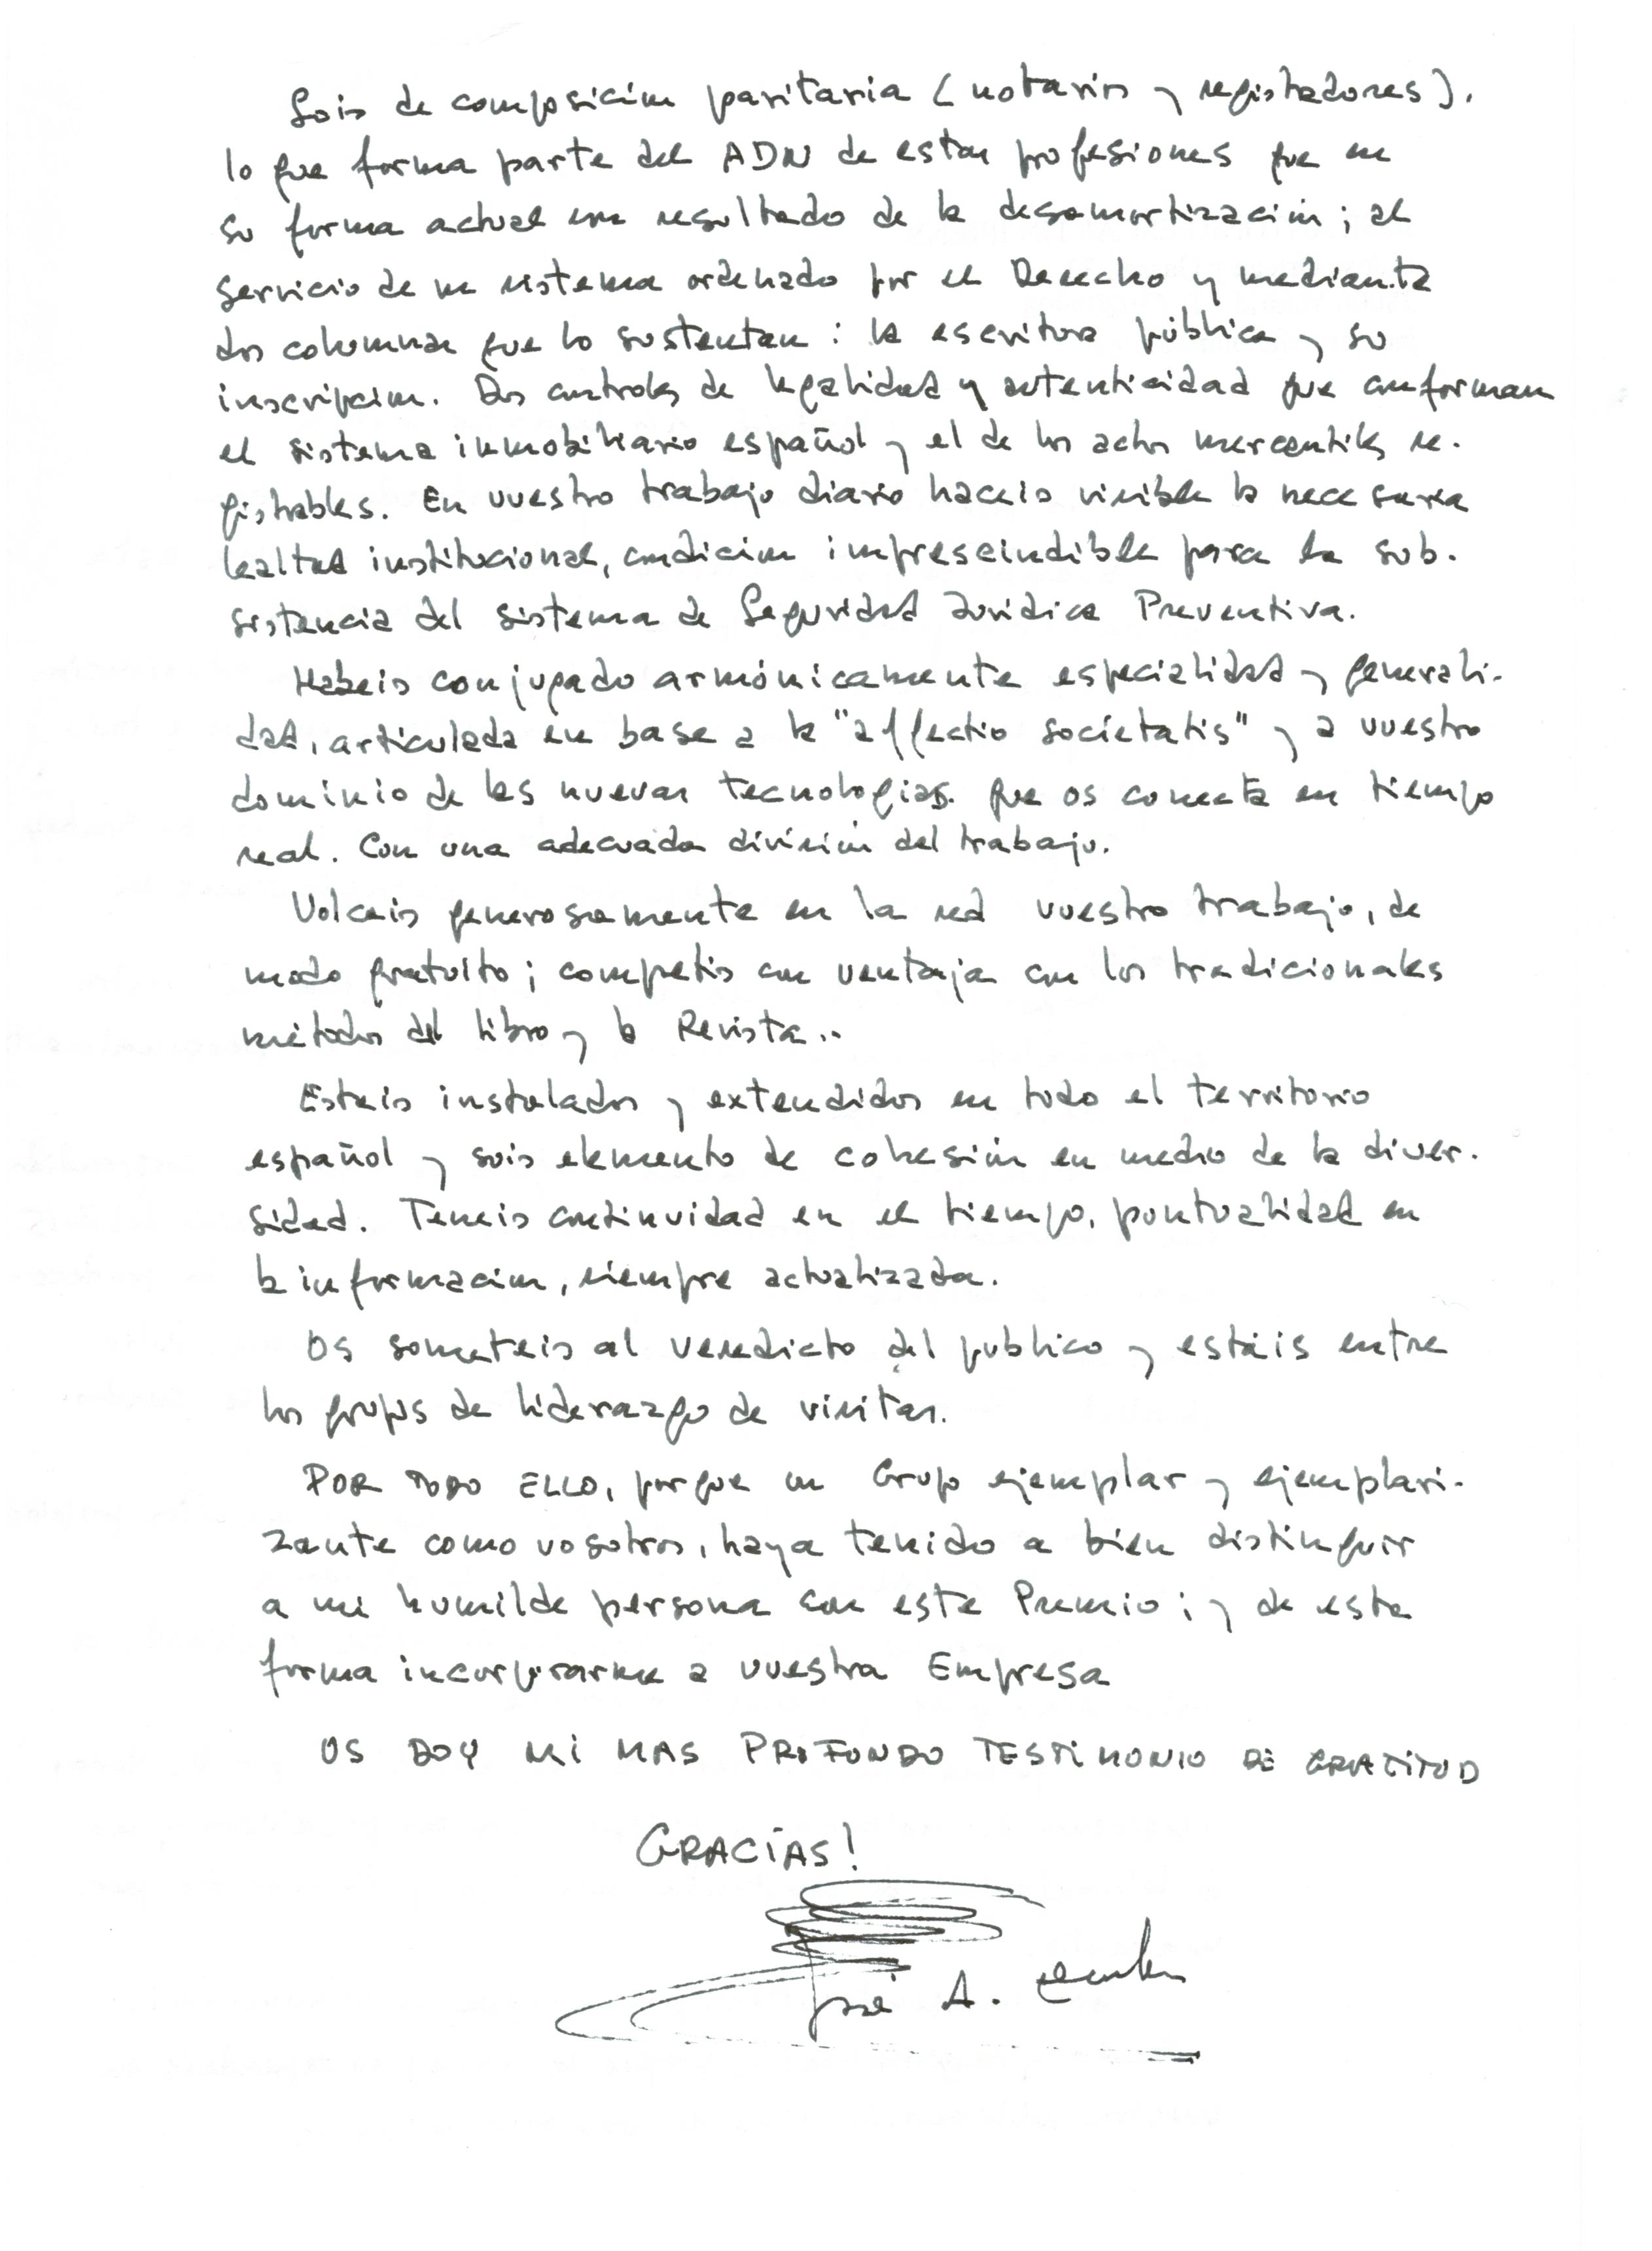 Sois de composición paritaria (notarios y registradores).
lo que forma parte del ADN de estas profesiones que en
su forma actual son resultado de la desamortización; al
servicio de un sistema ordenado por el Derecho y mediante
dos columnas que lo sustentan: la escritura pública y su
inscripción. Dos controles de legalidad y autenticidad que conforman
el sistema inmobiliario español y el de los actos mercantiles re-
gistrables. En vuestro trabajo diario haceis visible la necesaria
lealtad institucional, condición imprescindible para la sub-
sistencia del sistema de Seguridad Juridica Preventiva.
Habeis conjugado armónicamente especialidad y generali-
dad, articulada en base a la "affectio societatis" y a vuestro
dominio de las nuevas tecnologias. que os conecta en tiempo
real. Con una adecuada división del trabajo.
Volcais generosamente en la red vuestro trabajo, de
modo gratuito; competis con ventaja con los tradicionales
métodos del libro y la Revista..
Estais instalados y extendidos en todo el territorio
español y sois elemento de cohesión en medio de la diver-
sidad. Teneis continuidad en el tiempo, puntualidad en
la información, siempre actualizada.
Os someteis al veredicto del publico y estáis entre
los grupos de liderazgo de visitas.
POR TODO ELLO, porque un Grupo ejemplar y ejemplari-
zante como vosotros, haya tenido a bien distinguir
a mi humilde persona con este Premio; y de esta
forma incorporarme a vuestra Empresa
OS DOY MI MAS PROFUNDO TESTIMONIO DE GRATITUD
GRACIAS!
José A.